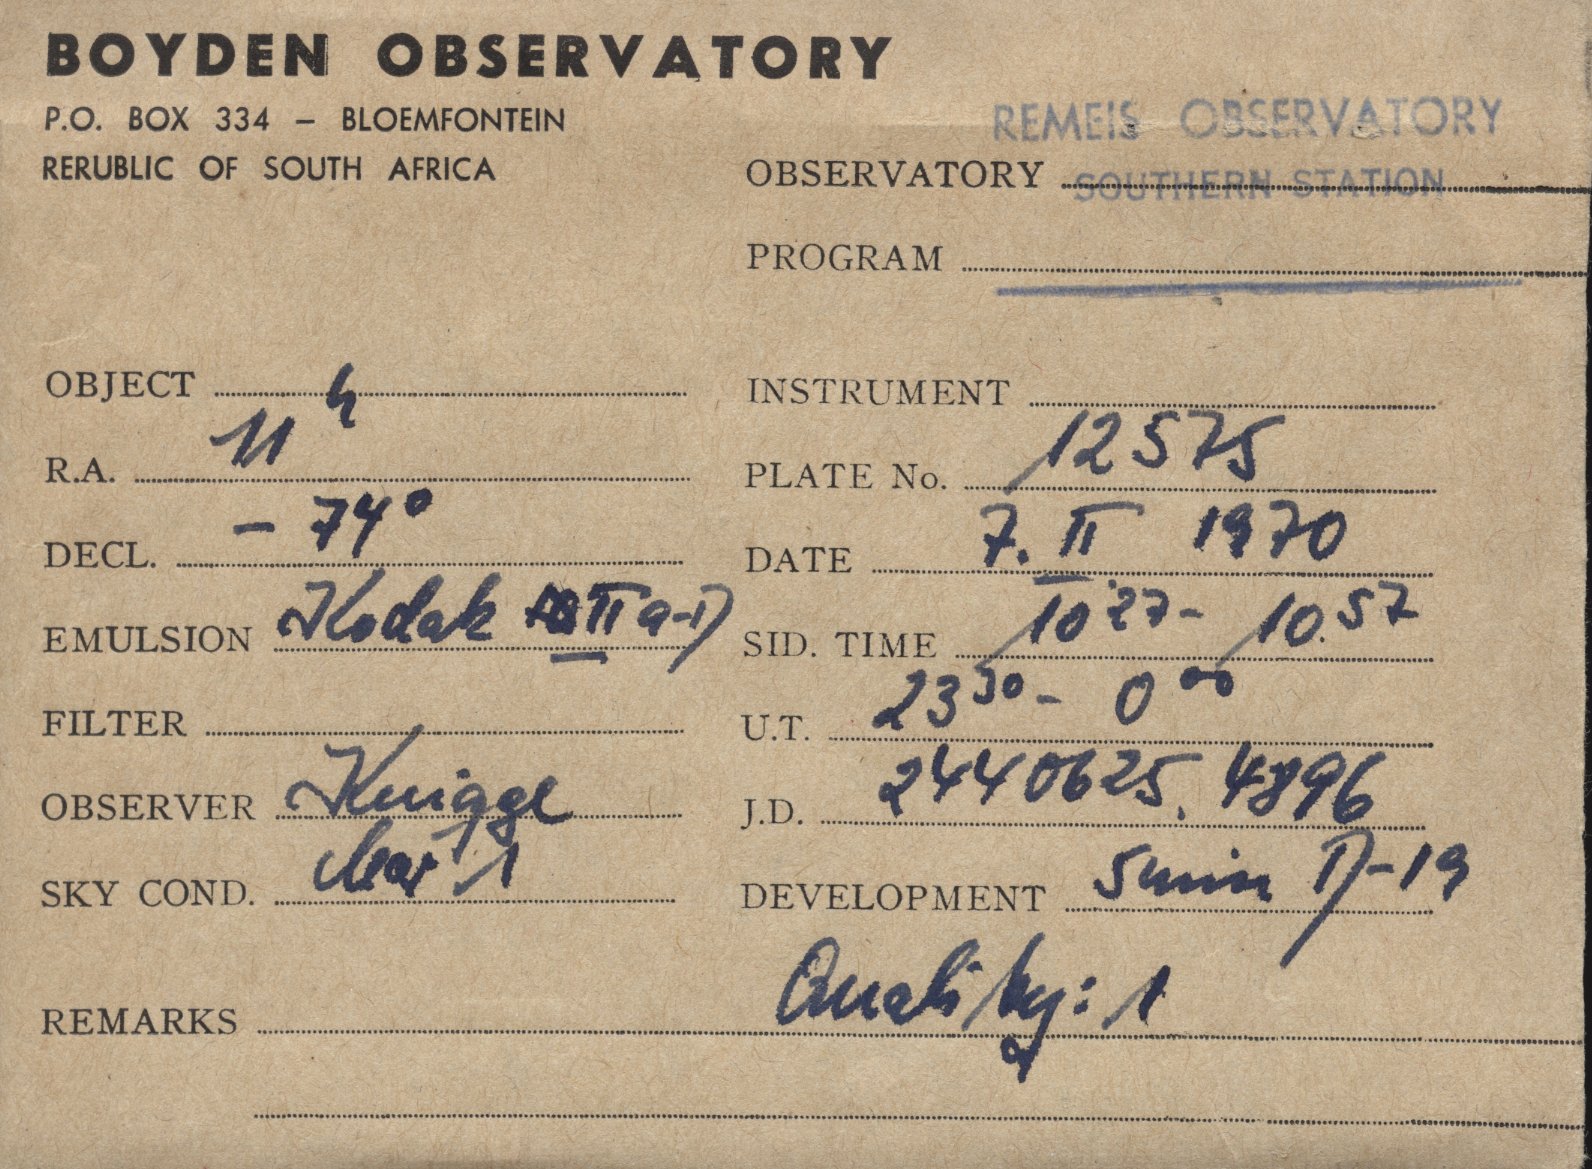 BOYDEN OBSERVATORY
P.O. BOX 334 – BLOEMFONTEIN
RERUBLIC OF SOUTH AFRICA
REMEIS OBSERVATORY
OBSERVATORY SOUTHERN STATION
PROGRAM
OBJECT
INSTRUMENT
R.A. 11 h
PLATE No. 12575
DECL. – 74°
DATE 7. II 1970
EMULSION Kodak II a-D
SID. TIME 10 27 - 10.57
FILTER
U.T. 23 30 - 0 00
OBSERVER Knigge
J.D. 2440625.4896
SKY COND. clear 1
DEVELOPMENT 5 min D-19
REMARKS Quality: 1